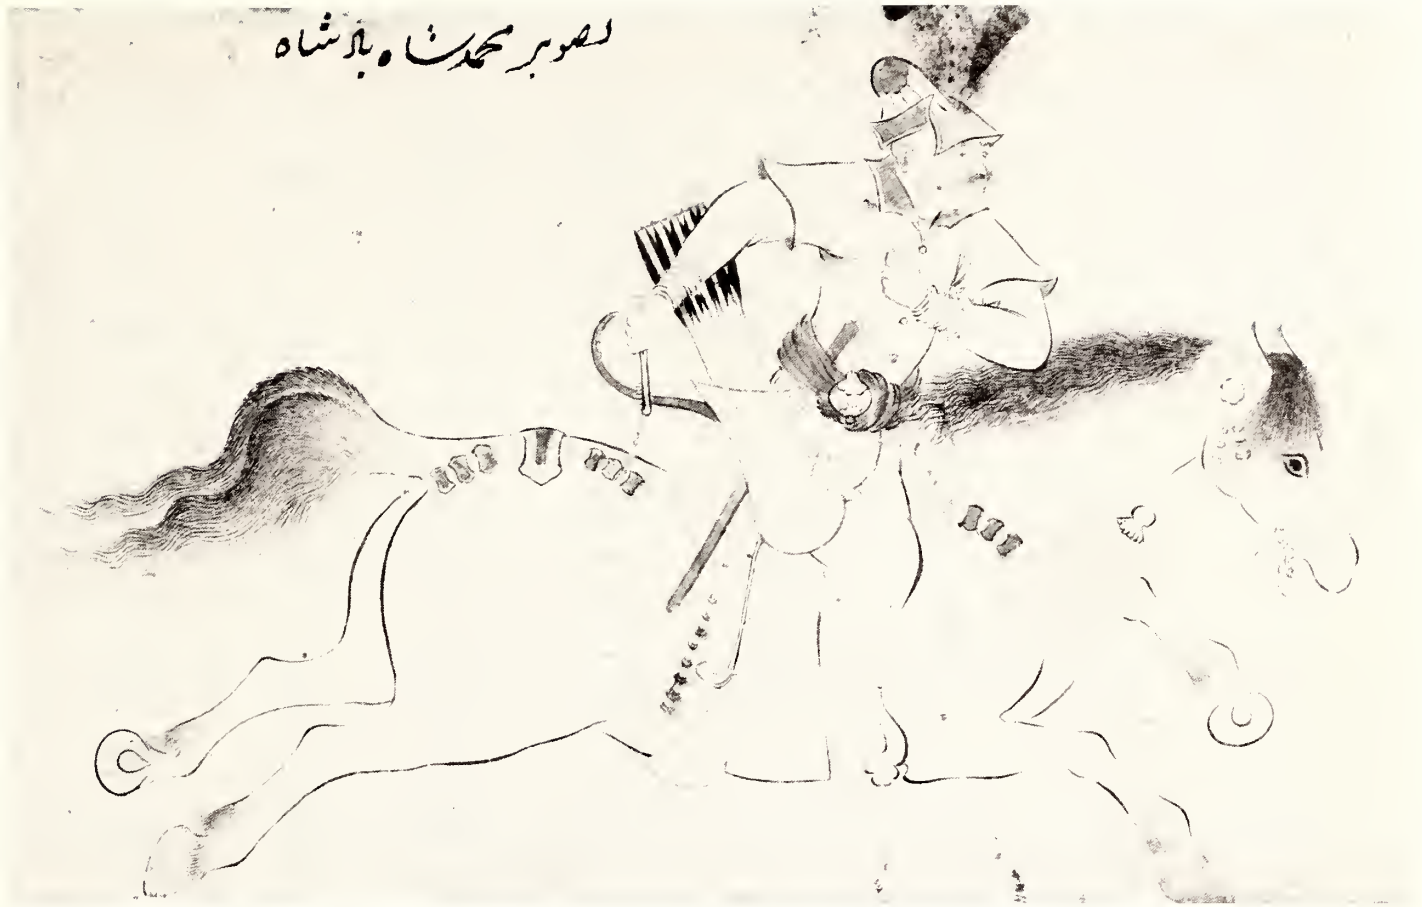 تصویر محمد شاہ بادشاہ